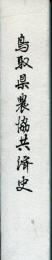 鳥取県農協共済史